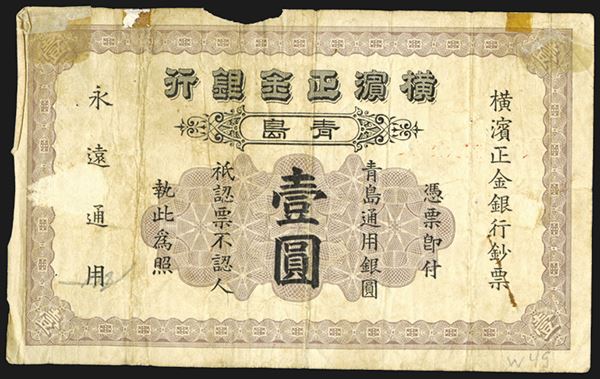 橫濱正金銀行
青島
橫濱正金銀行鈔票
憑票即付
青島通用銀圓
壹圓
祇認票不認人
執此爲照
永遠通用
壹
壹
壹
壹
W 49